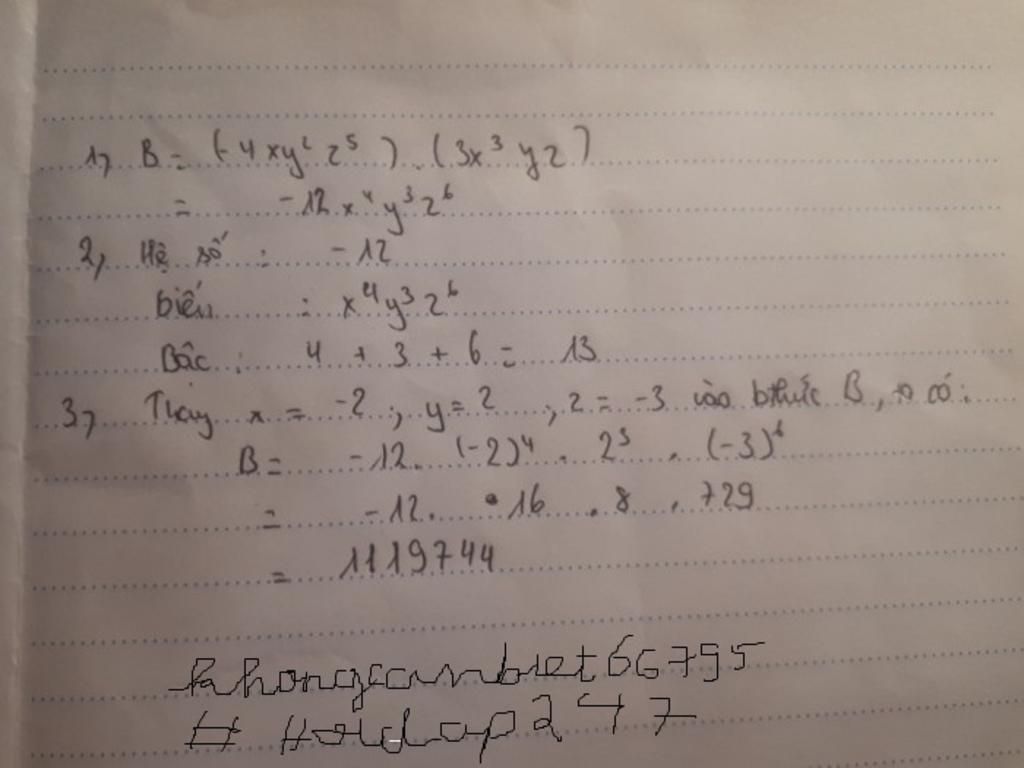 1, B = (-4xy² z⁵) . (3x³ y z)
= -12 x⁴ y³ z⁶
2, Hệ số : -12
biến : x⁴ y³ z⁶
Bậc : 4 + 3 + 6 = 13
3, Thay x = -2 ; y = 2 ; z = -3 vào bthức B, ta có :
B = -12 . (-2)⁴ . 2³ . (-3)⁶
= -12 . 16 . 8 . 729
= 1119744
khongcanbiet66795
# Hoidap247